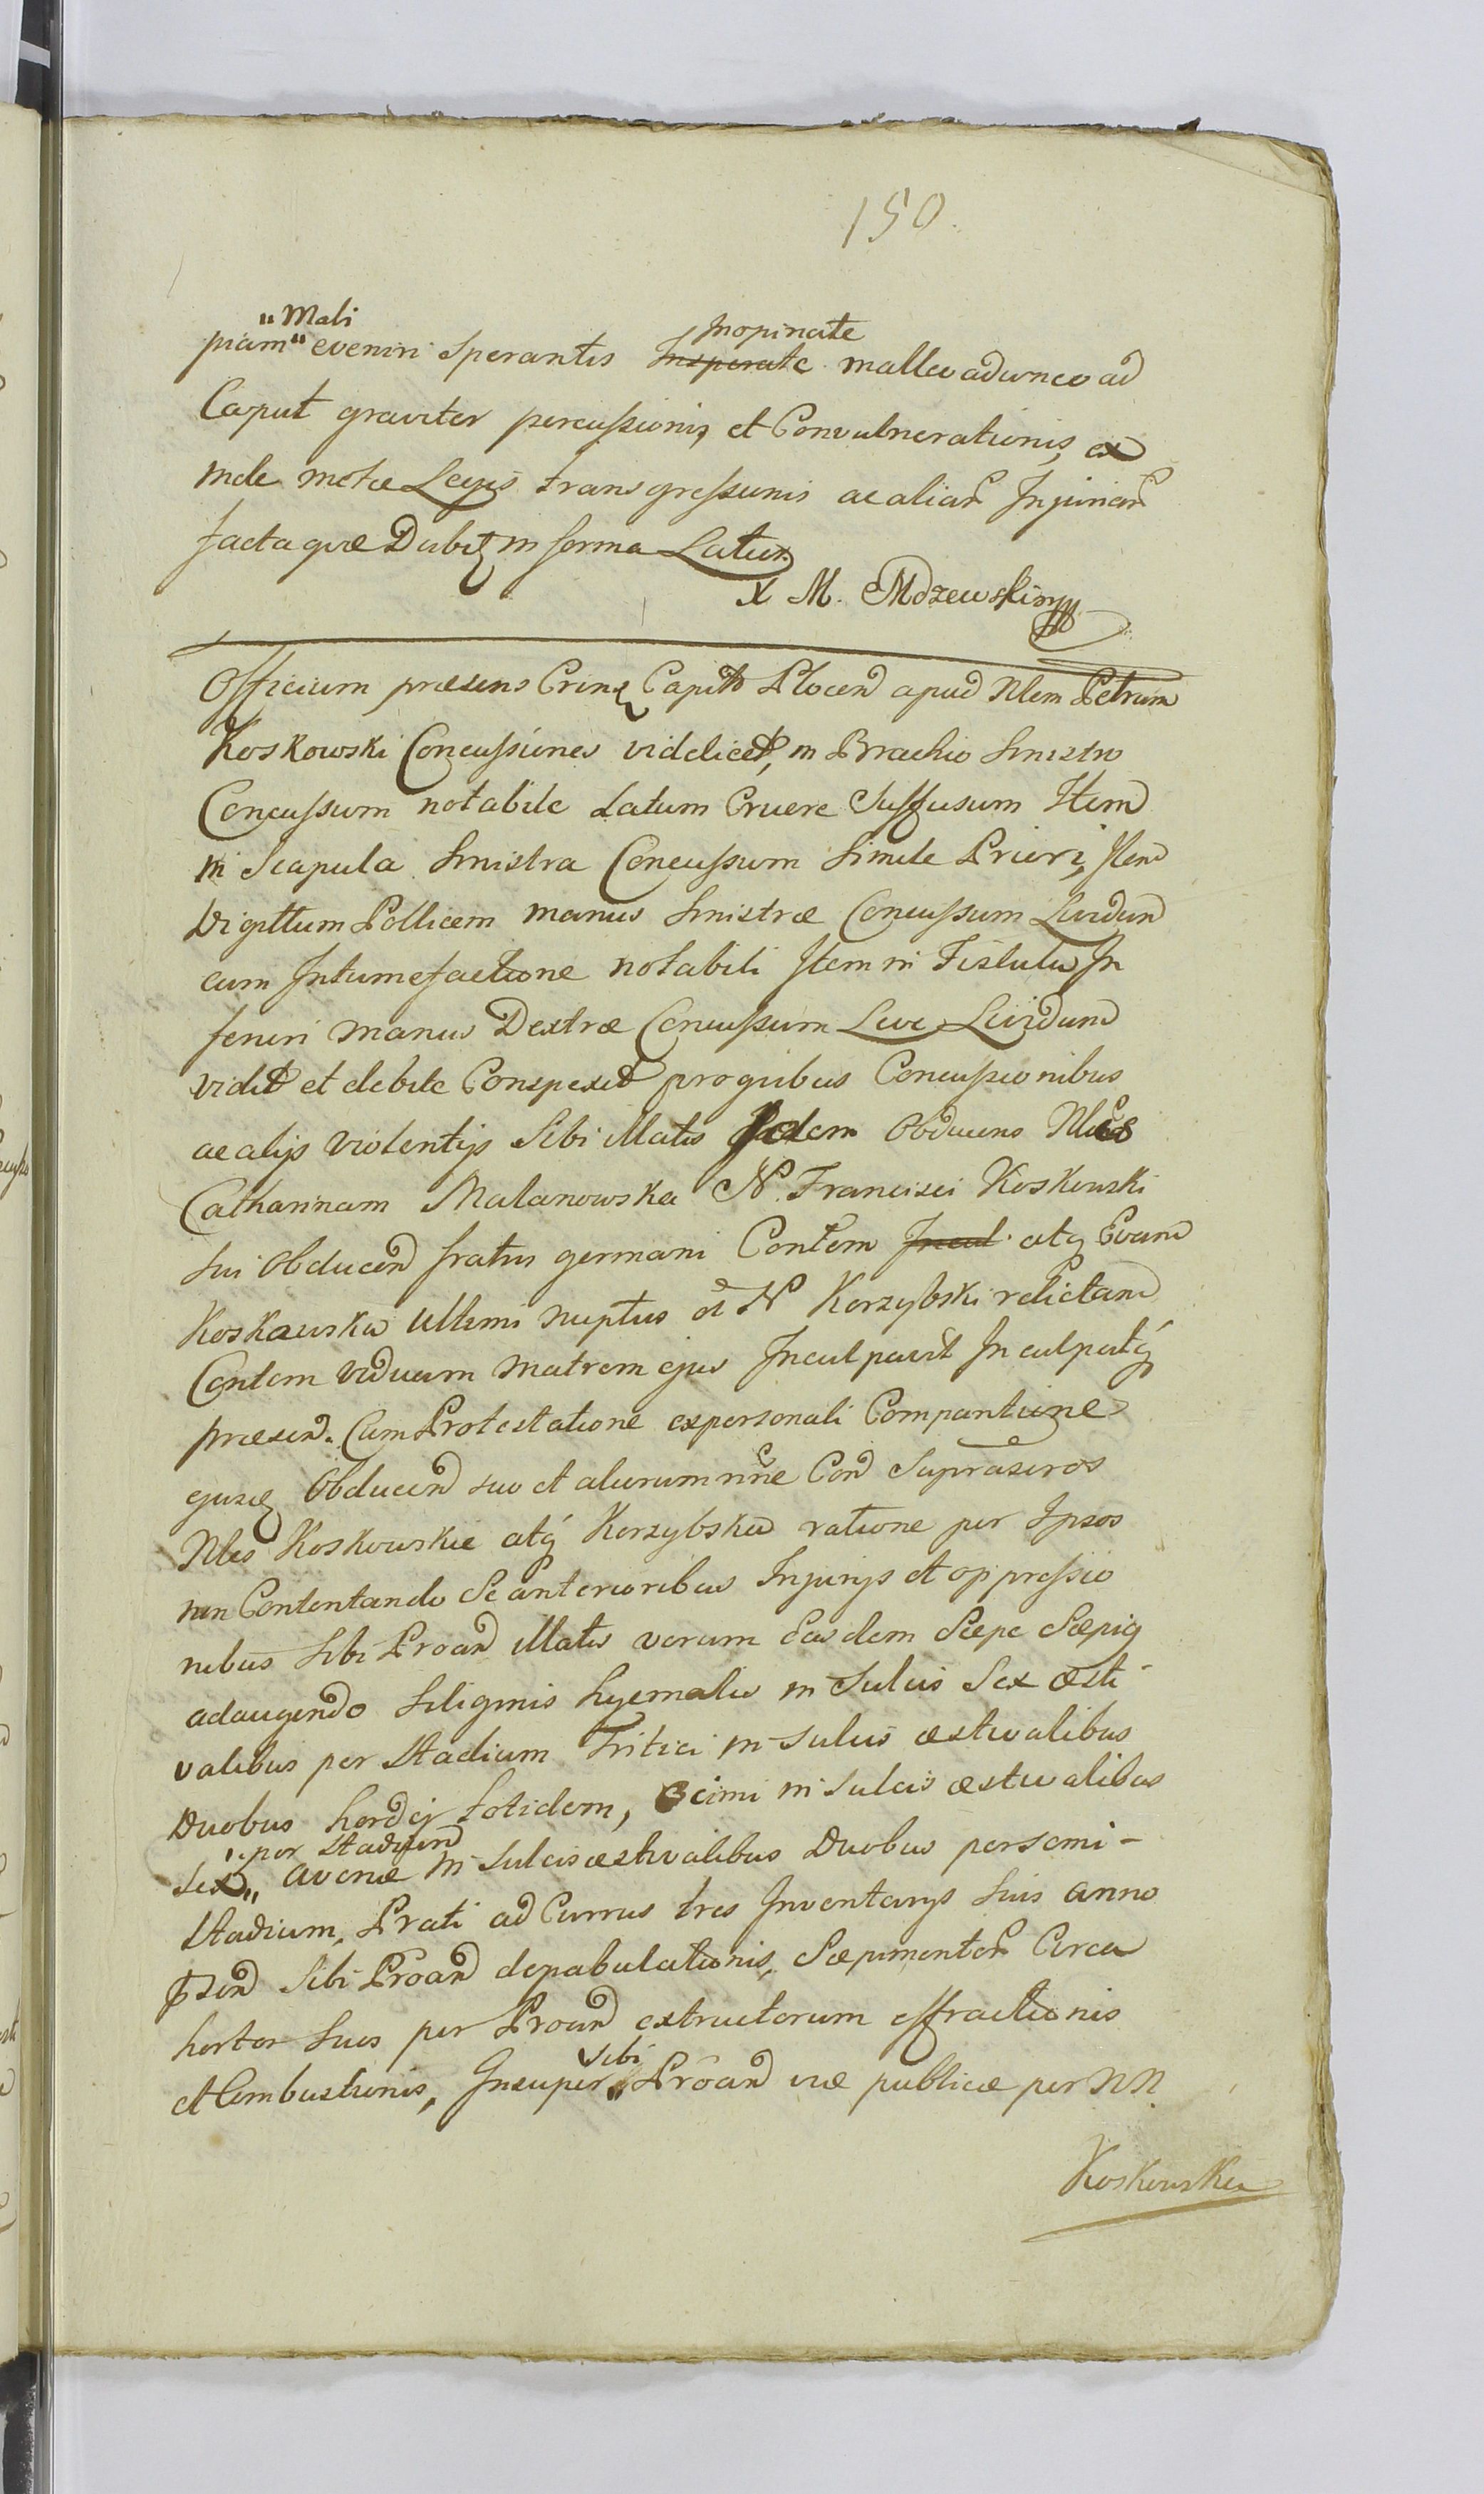 150.
"Mali
piam" eveniri Sperantis Insperate Inopinate malleo adunco ad
Caput graviter percussionis, et Convulnerationis, ex
inde motæ Legis transgressionis ac aliar Injuriar
factaque Dabit in forma Latius
X M. Mdzewski mp
Officium præsens Crins Capit Plocen apud Nlem Petrum
Koskowski Concussiones videlicet, in Brachio Sinistro
Concussum notabile Latum Cruore Suffusum Item
in Scapula Sinistra Concussum Simile Priori, Item
Digittum Pollicem manus Sinistræ Concussum Lividum
cum Intumefactione notabili Item in Fistula In
feriori manus Dextræ Concussum Leve Lividum
vidit et debite Conspexit pro quibus Concussionibus
ac alijs violentijs Sibi illatis Idem Obducens Nles
Catharinam Malanowska N. Francisci Koskowski
Sui Obducen fratris germani Contem Incul atq Evam
Koskowska Ultimi nuptus olt N Korzybski relictam
Contem viduam matrem ejus Inculpavit Inculpatq
præsen. Cum Protestatione ex personali Comparitione
ejusd Obducen suo et aliorum nne Con Suprascros
Nles Koskowskie atq Korzybska ratione per Ipsos
non Contentando Se anterioribus Injurijs et oppressio
nibus Sibi Proan illatis verum Easdem Sæpe Sæpiq
adaugendo Siliginis hyemalis in Sulcis Sex æsti
valibus per Stadium Tritici in Sulcis æstivalibus
Duobus hordej totidem, Cicimi in Sulcis æstivalibus
Sex" "per Stadium avenæ in Sulcis æstivalibus Duobus per semi-
Stadium, Prati ad Currus tres Inventarijs Suis anno
psen Sibi Proan depabulationis, Sæpimentor Circa
hortos Suos per Proan extructorum effractionis
et Combustionis, Insuper" Sibi Proan viæ publicæ per NN.
Koskowska